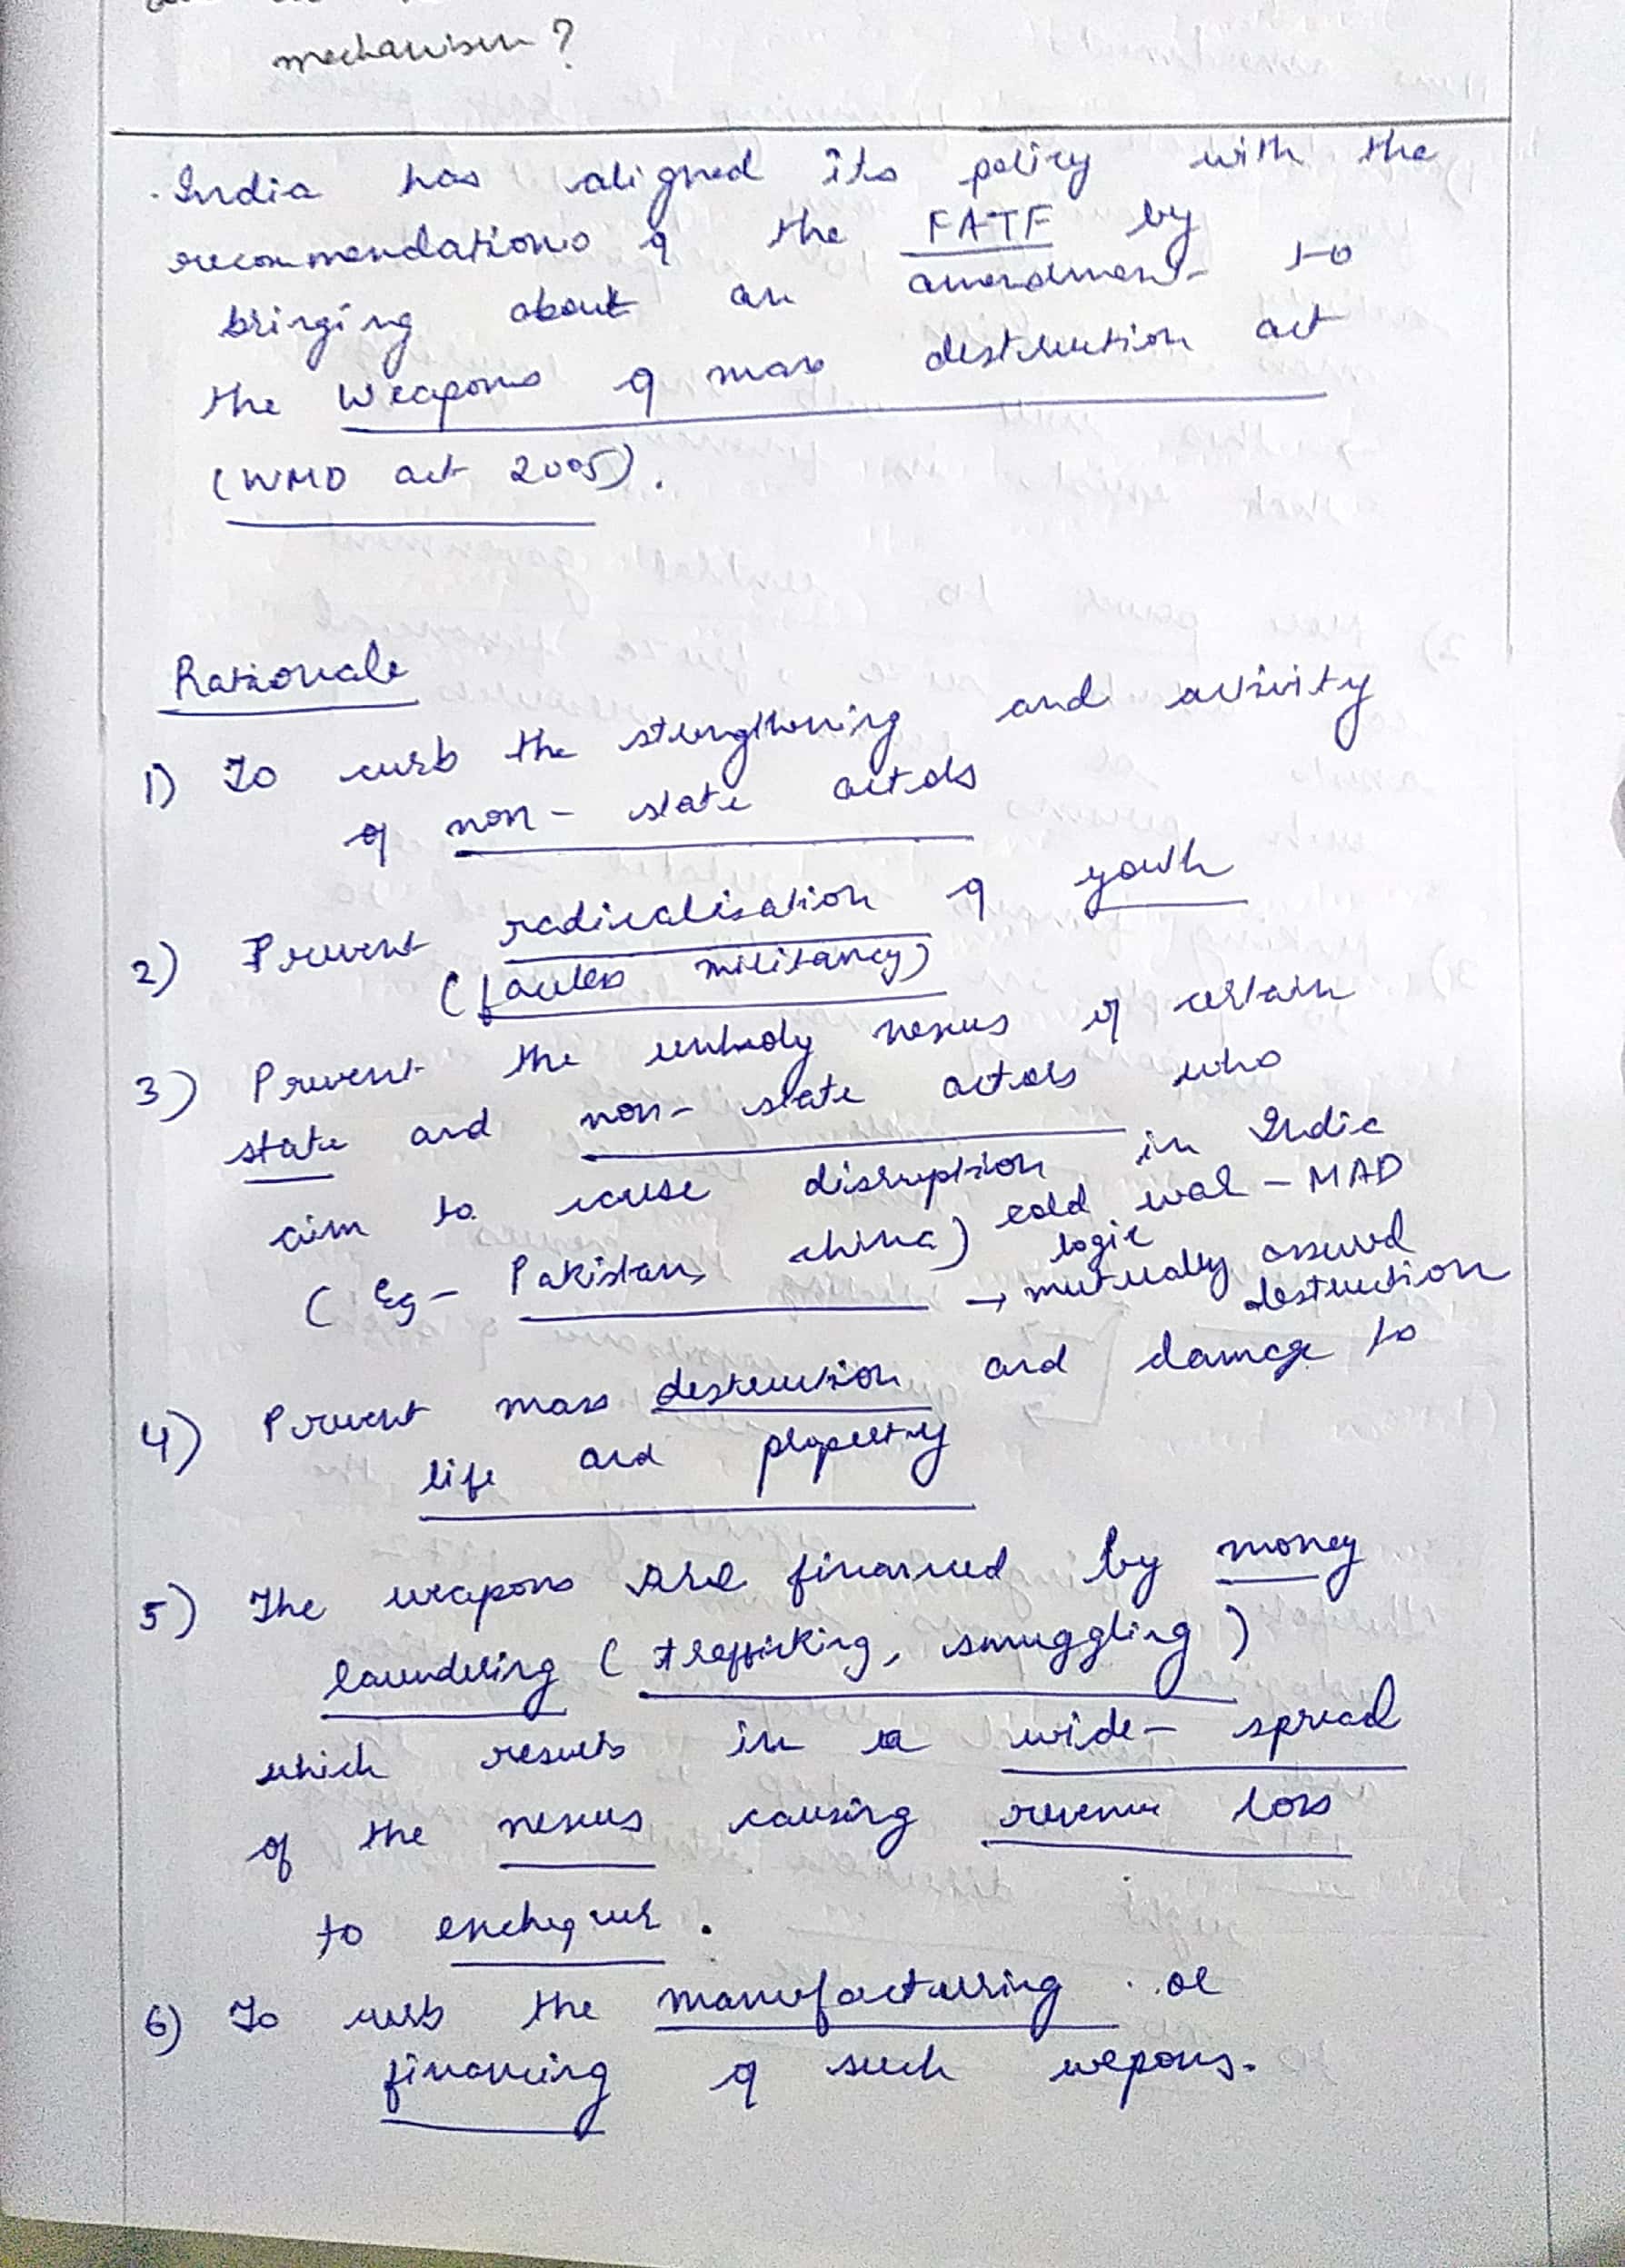 mechanism?
India has aligned its policy with the
recommendations of the FATF by
bringing about an amendment to
the Weapons of mass destruction act
(WMD act 2005).
Rationale
1) To curb the strengthening and activity
of non-state actors
2) Prevent radicalisation of youth
(faceless militancy)
3) Prevent the unholy nexus of certain
state and non-state actors who
aim to cause disruption in India
(Eg- Pakistan, china) cold war - MAD
logic
→ mutually assured
destruction
4) Prevent mass destruction and damage to
life and property
5) The weapons are financed by money
laundering (trafficking, smuggling)
which results in a wide-spread
of the nexus causing revenue loss
to exchequer.
6) To curb the manufacturing or
financing of such wepons.